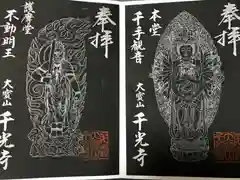 奉拝
護摩堂
不動明王
大雲山
千光寺
奉拝
本堂
千手観音
大雲山
千光寺